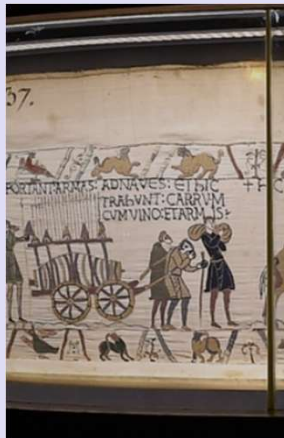 37.
PORTANT:ARMAS: ADNAVES: ET hIC
TRAhUNT: CARRUM
CUM VINO: ET ARMIS: